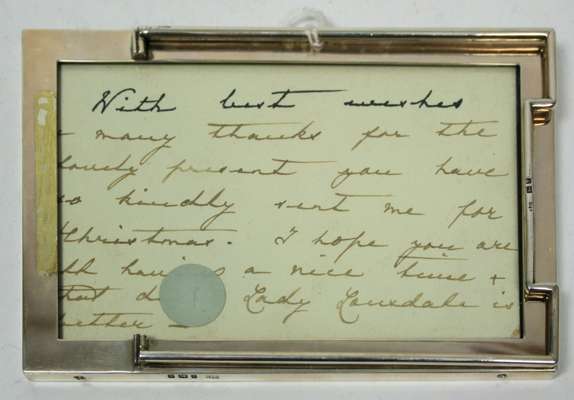 With best wishes
& many thanks for the
lovely present you have
so kindly sent me for
Christmas. I hope you are
a nice time +
that Lady Lonsdale is
better —